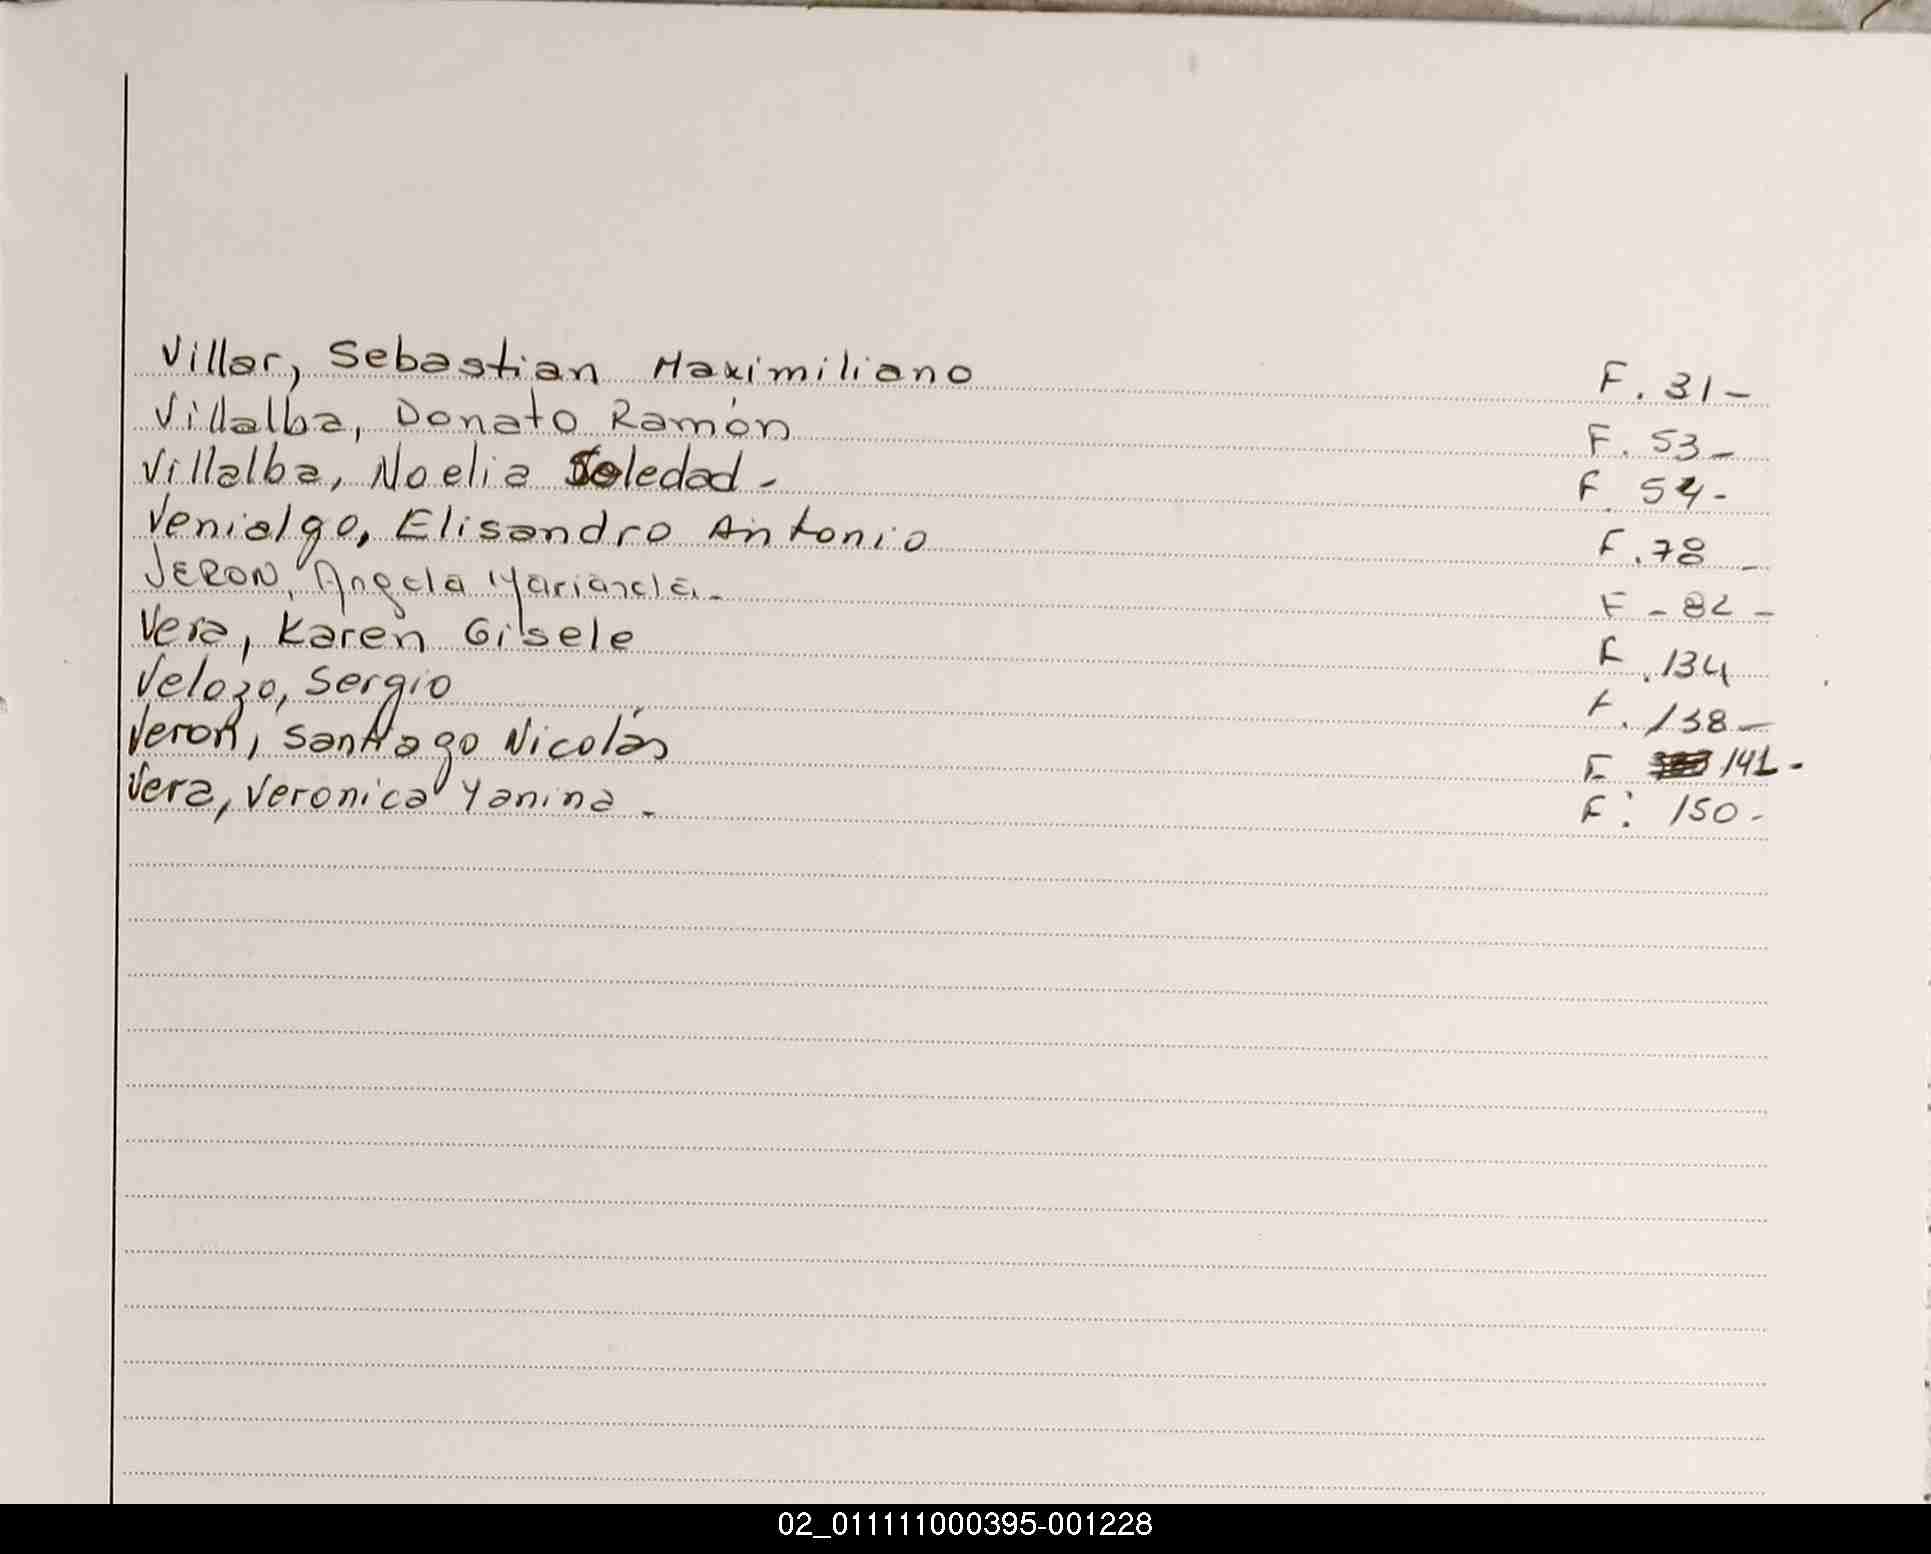 Villar, Sebastian Maximiliano F. 31-
Villalba, Donato Ramón F. 53-
Villalba, Noelia Soledad- F. 54-
Venialgo, Elisandro Antonio F. 78-
VERON, Angela Marianela- F-82-
Vera, Karen Gisele F. 134
Velozo, Sergio F. 138-
Veron, Santiago Nicolás F. 142-
Vera, Veronica Yanina- F: 150-
02_011111000395-001228